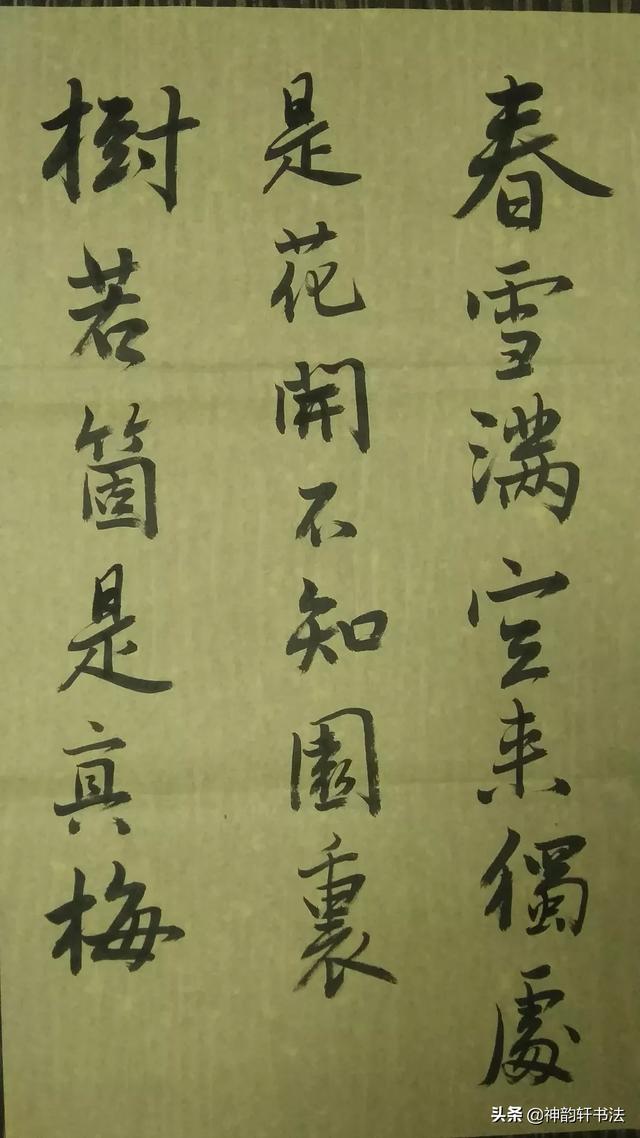 春雪滿空来獨處
是花開不知園裏
樹若箇是真梅
头条 @神韵轩书法